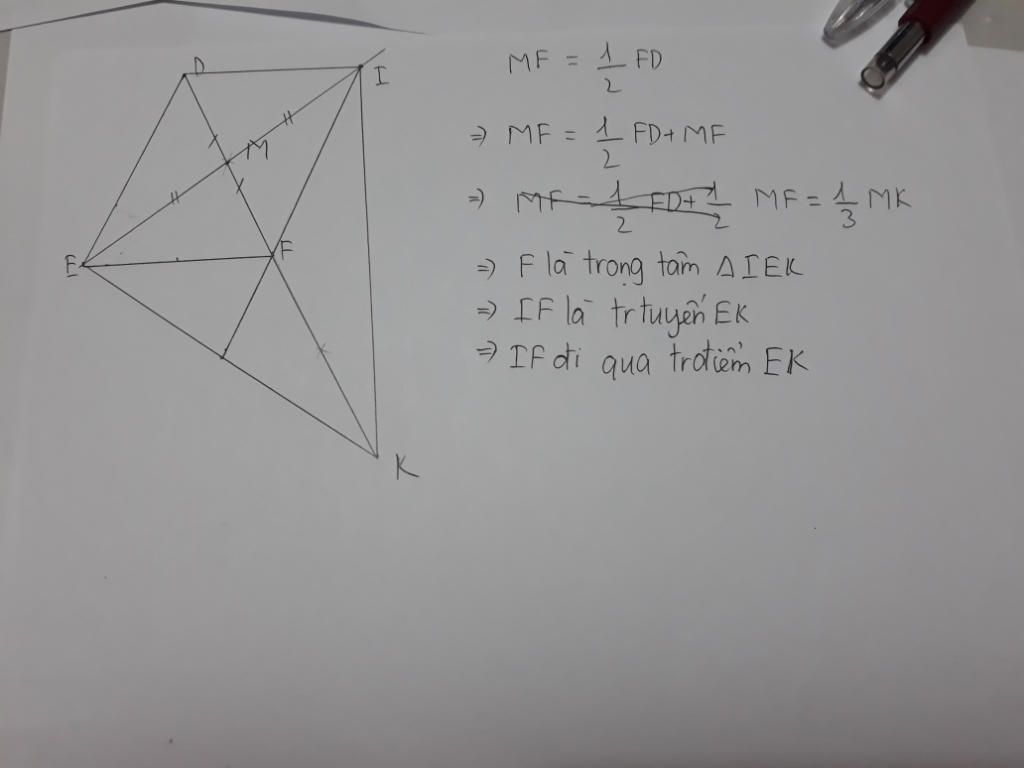 D
I
M
E
F
K
MF = 1/2 FD
=> MF = 1/2 FD + MF
=> MF = 1/2 FD + 1/2 MF = 1/3 MK
=> F là trọng tâm Δ IEK
=> IF là trtuyến EK
=> IF đi qua trđiểm EK